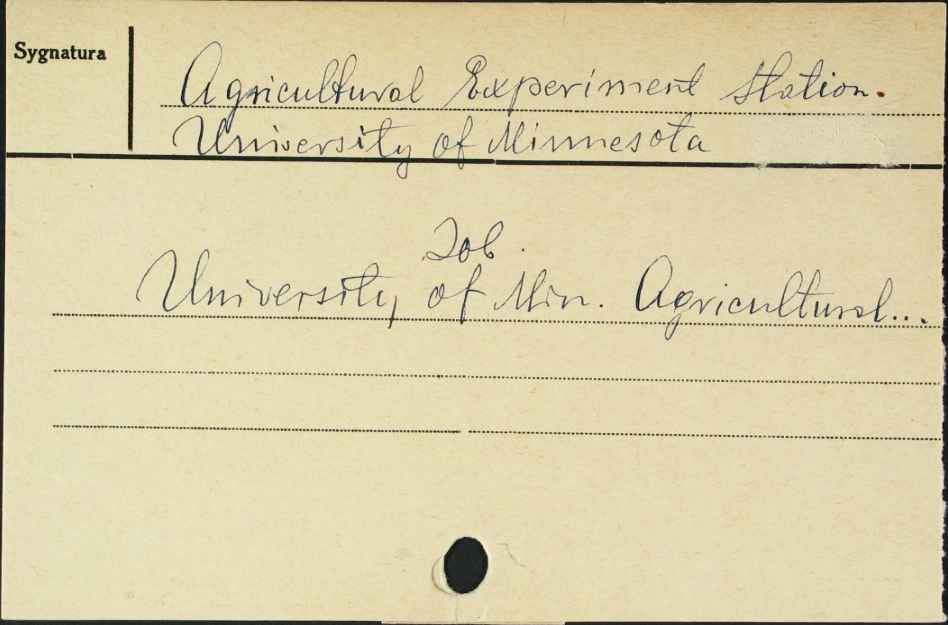 Sygnatura
Agricultural Experiment Station.
University of Minnesota
Zob.
University of Min. Agricultural...